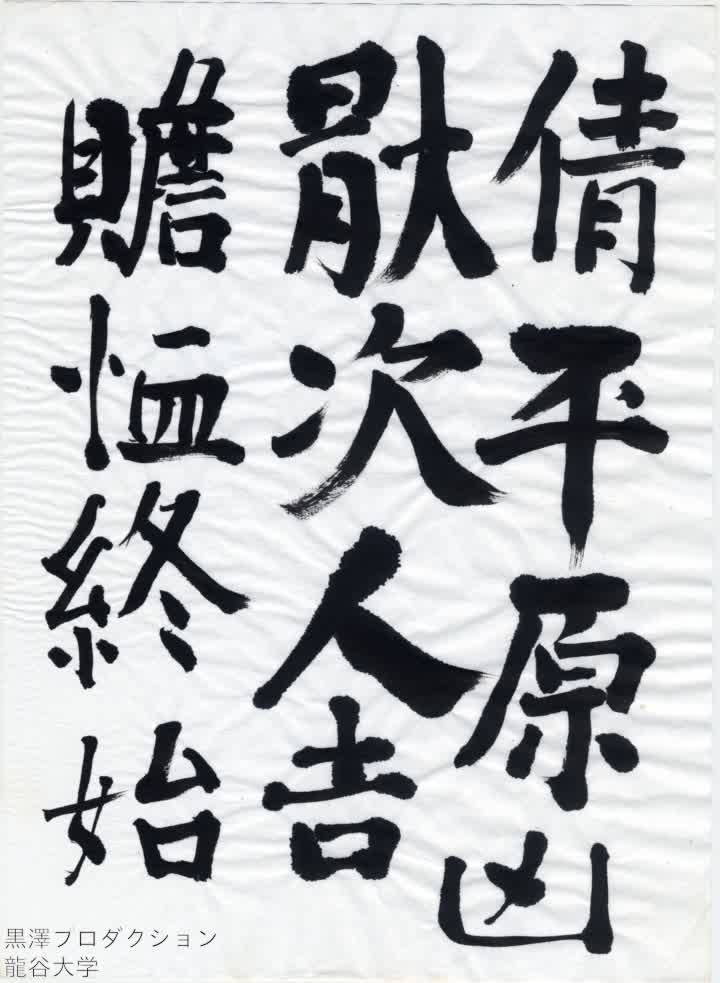 倩平原凶
猒次人吉
贍恤終始
黒澤プロダクション
龍谷大学